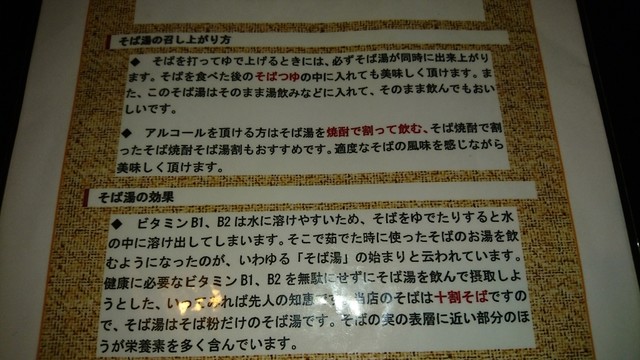 そば湯の召し上がり方
◆ そばを打ってゆで上げるときには、必ずそば湯が同時に出来上がり
ます。そばを食べた後のそばつゆの中に入れても美味しく頂けます。ま
た、このそば湯はそのまま湯飲みなどに入れて、そのまま飲んでもおい
しいです。
◆ アルコールを頂ける方はそば湯を焼酎で割って飲む、そば焼酎で割
ったそば焼酎そば湯割もおすすめです。適度なそばの風味を感じながら
美味しく頂けます。
そば湯の効果
◆ ビタミンB1、B2は水に溶けやすいため、そばをゆでたりすると水
の中に溶け出してしまいます。そこで茹でた時に使ったそばのお湯を飲
むようになったのが、いわゆる「そば湯」の始まりと云われています。
健康に必要なビタミンB1、B2を無駄にせずにそば湯を飲んで摂取しよ
うとした、いってみれば先人の知恵です。当店のそばは十割そばですの
で、そば湯はそば粉だけのそば湯です。そばの実の表層に近い部分のほ
うが栄養素を多く含んでいます。